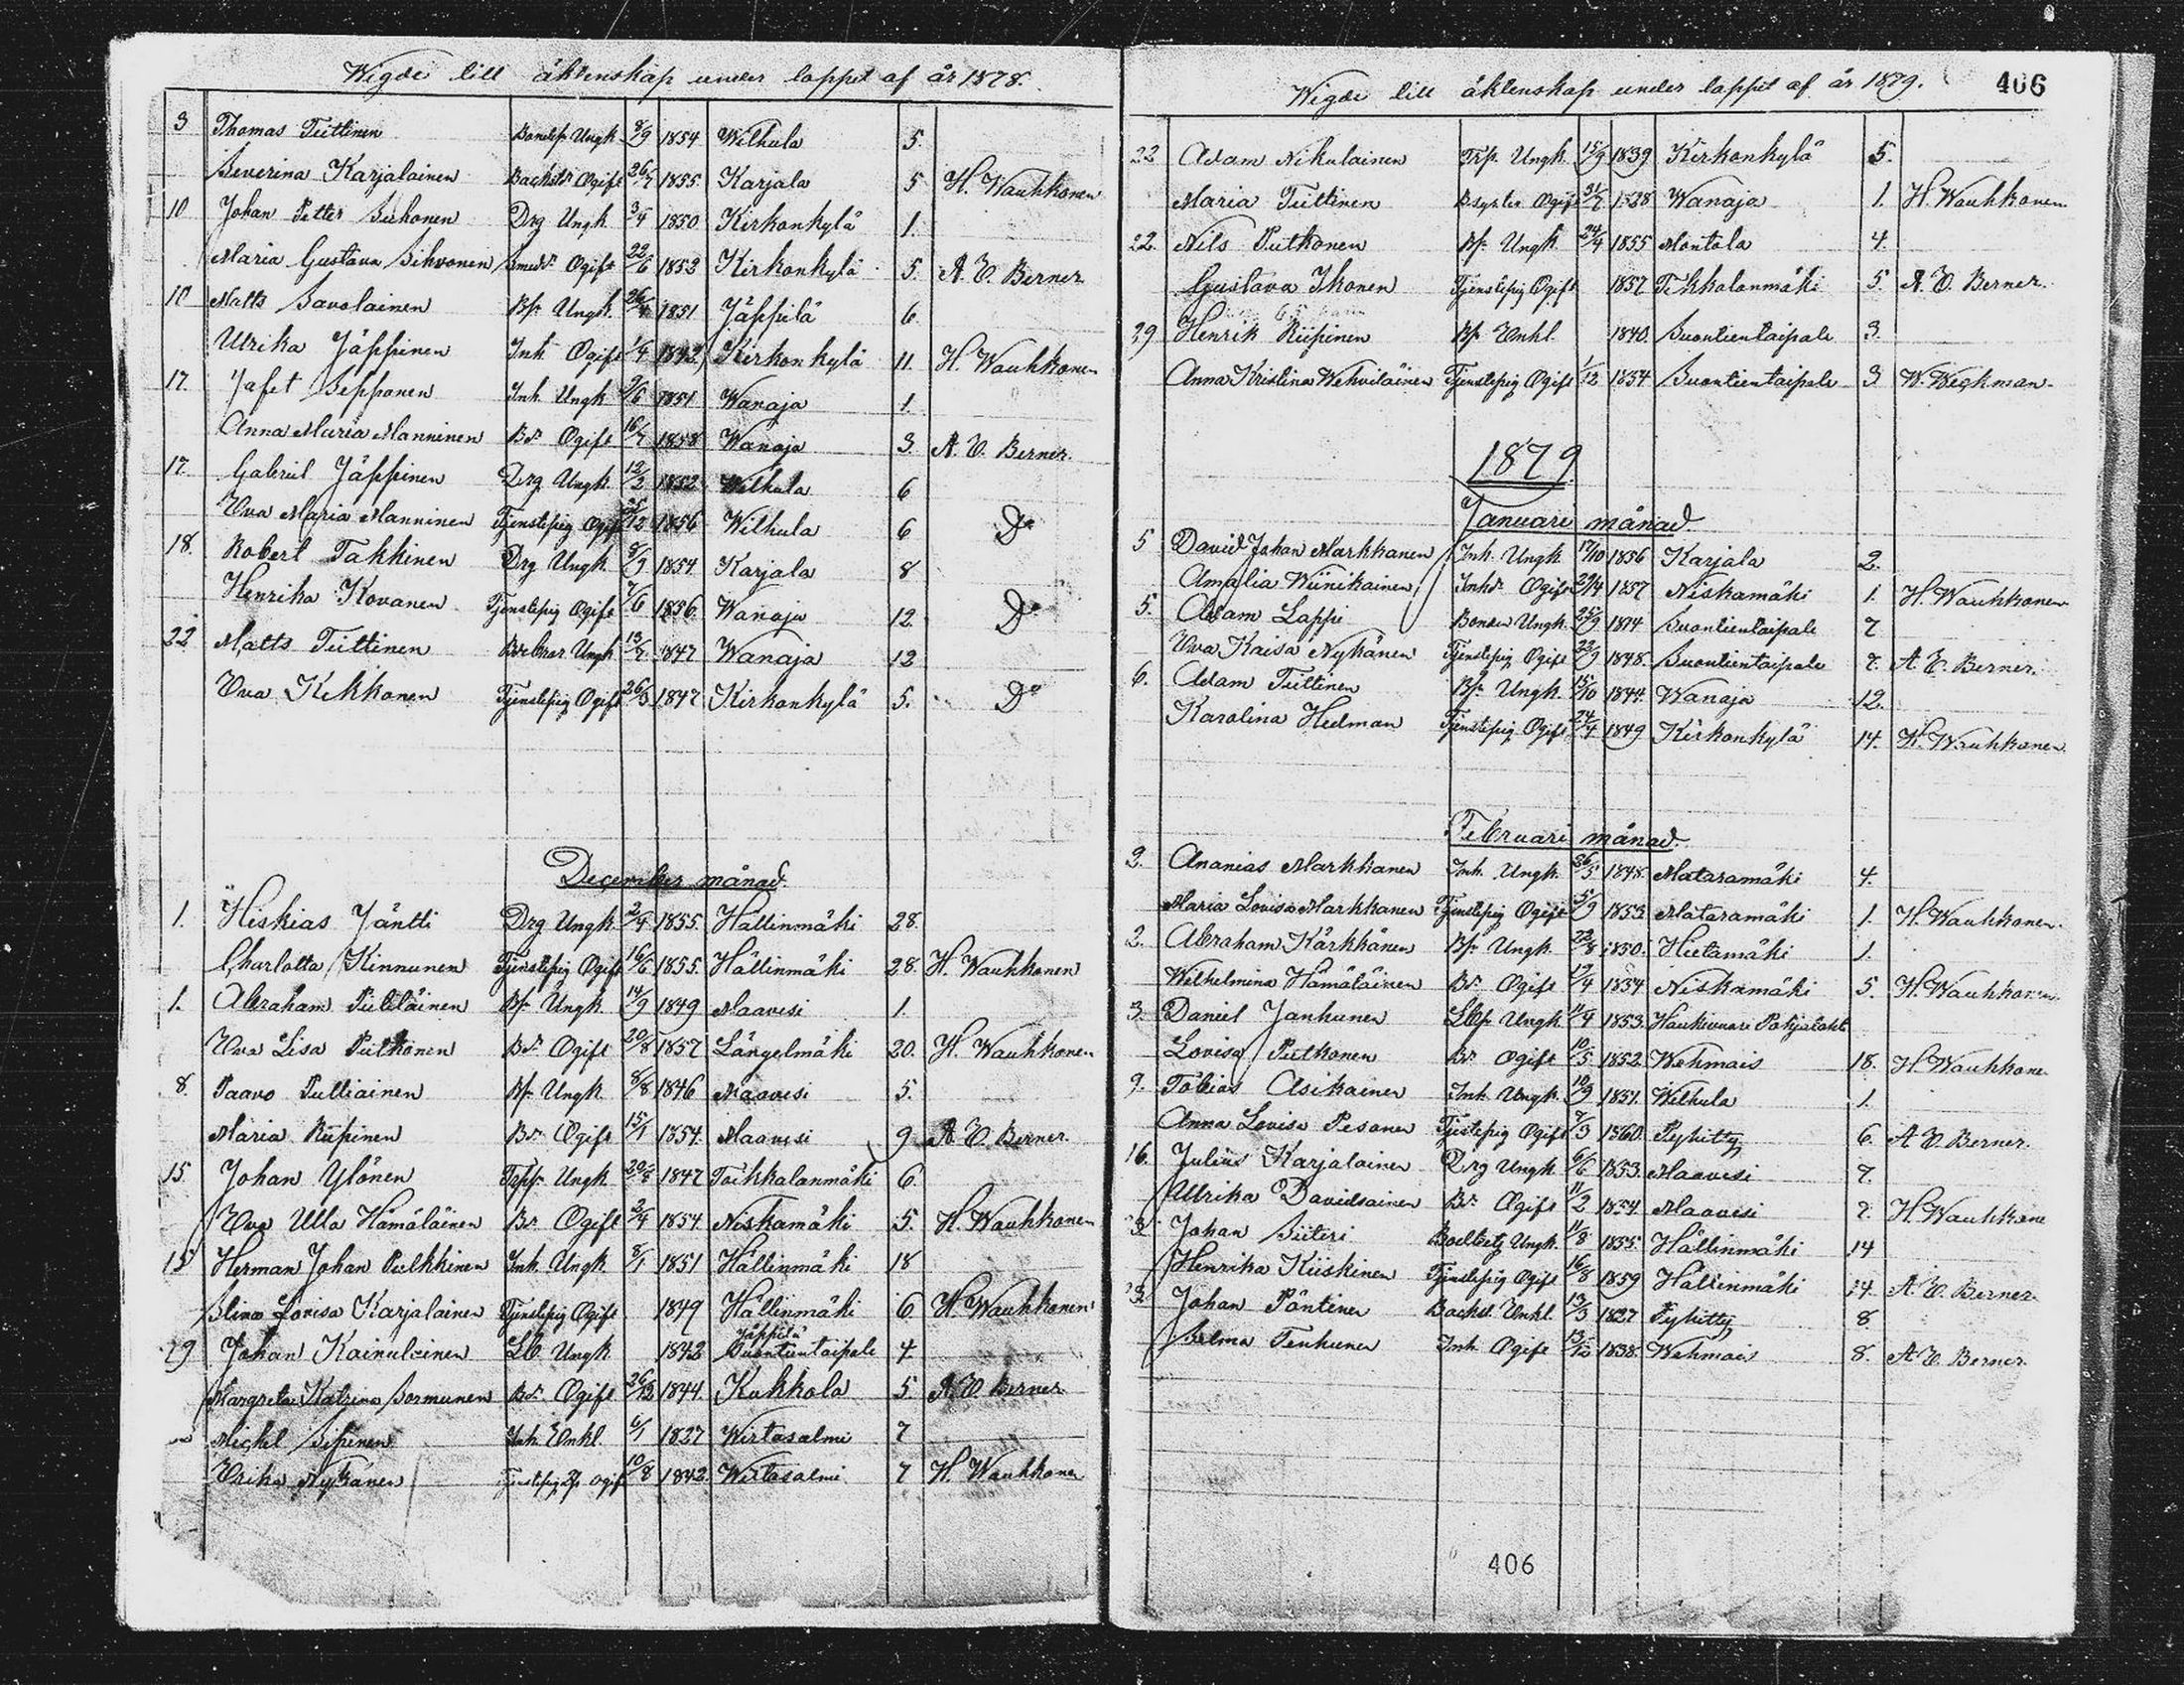 Wigde till äktenskap under loppet af år 1878.
3 Thomas Tiittinen Bondes. Ungk 8/9 1854 Wilhula 5.
Severina Karjalainen Ogift 26/7 1855. Karjala 5 H. Wauhkonen
10 Johan Petter Suhonen Drg Ungk 3/4 1850 Kirkonkylä 1.
Maria Gustava Sihvonen Smedsd. Ogift 22/6 1852 Kirkonkylä 5. A. E. Berner
10 Matts Savolainen Bs. Ungk. 1851 Jäppilä 6
Ulrika Jäppinen Inh Ogift 1/4 1842 Kirkonkylä 11. H. Wauhkonen
17. Jafet Sepponen Inh. Ungk 9/6 1851 Wanaja 1.
Anna Maria Manninen Bd. Ogift 16/7 1858 Wanaja 3. A. E. Berner.
17. Gabriel Jäppinen Drg. Ungk. 12/2 1852 Wilhula 6
Eva Maria Manninen Tjenstepig Ogift 1856 Wilhula 6 Do
18. Robert Takkinen Drg Ungk. 8/9 1854 Karjala 8
Henrika Kovanen Tjenstepig Ogift 7/6 1856 Wanaja 12. Do
22 Matts Tiittinen Ungk 13/7 1847 Wanaja 12
Eva Kekkonen Tjenstepig Ogift 26/3 1847 Kirkonkylä 5. Do
December månad.
1. Hiskias Jäntti Drg Ungk 2/4 1855. Hällinmäki 28.
Charlotta Kinnunen Tjenstepig Ogift 16/6 1855. Hällinmäki 28. H. Wauhkonen
1. Abraham Pulliäinen Bs. Ungk. 14/9 1849 Maavesi 1.
Eva Lisa Putkonen Bd. Ogift 20/8 1857 Längelmäki 20. H. Wauhkonen
8. Paavo Pulliainen Bs. Ungk. 8/8 1846 Maavesi 5.
Maria Riipinen Bd. Ogift 15/1 1854. Maavesi 9 A. E. Berner.
15. Johan Ylönen Trps. Ungk 1847 Toikkalanmäki 6
Eva Ulla Hämäläinen Bd. Ogift 2/4 1854. Niskamäki 5. H. Wauhkonen
15 Herman Johan Pulkkinen Inh. Ungk. 8/1 1851 Hällinmäki 18
Stina Lovisa Karjalainen Tjenstepig Ogift 1849 Hällinmäki 6 H. Wauhkonen
Jäppilä
29 Johan Kainulainen Lb. Ungk 1842 Suontientaipale 4.
Margreta Katrina Sormunen Bd. Ogift 26/12 1844. Kukkola 5 A. E. Berner
Mickel Sipinen Inh. Enkl. 6/1 1827 Wirtasalmi 7
Erika Nykänen Ogift 10/8 1842. Wirtasalmi 7 H. Wauhkonen
Wigde till äktenskap under loppet af år 1879. 406
22 Adam Nikulainen Trp. Ungk. 15/9 1839 Kirkonkylä 5.
Maria Tiittinen Bsyster Ogift 31/7 1828 Wanaja 1. H. Wauhkonen
22. Nils Putkonen Bs. Ungk 24/4 1855 Montola 4.
Gustava Ikonen Tjenstepig Ogift 1857 Tikkalanmäki 5. A. E. Berner.
29 Henrik Riipinen Bs Enkl. 1840. Suontientaipale 3.
Anna Kristina Wehviläinen Tjenstepig Ogift 1/12 1854 Suontientaipale 3 W. Weckman.
1879
Januari månad.
5 David Johan Markkanen Inh. Ungk 17/10 1856 Karjala 2.
Amalia Wiinikainen Inhd. Ogift 29/4 1857 Niskamäki 1. H. Wauhkonen
5. Adam Lappi Bonden Ungk. 25/9 1874 Suontientaipale 7
Eva Kaisa Nykänen Tjenstepig Ogift 22/9 1848. Suontientaipale 7. A. E. Berner.
6. Adam Tiittinen Bs. Ungk. 15/10 1844. Wanaja 12.
Karolina Hedman Tjenstepig Ogift 24/4 1849 Kirkonkylä 14. H. Wauhkonen
Februari månad.
2. Ananias Markkanen Inh. Ungk. 26/5 1848. Mataramäki 4.
Maria Lovisa Markkanen Tjenstepig Ogift 5/9 1853 Mataramäki 1. H. Wauhkonen.
2. Abraham Kärkkänen Bs. Ungk. 22/8 1850. Hietamäki 1.
Wilhelmina Hämäläinen Bd. Ogift 19/4 1854 Niskamäki 5. H. Wauhkonen.
3. Daniel Janhunen Ungk 11/4 1853. Haukivuori Pohjalaht
Lovisa Putkonen Bd Ogift 10/5 1852. Wehmais 18. H. Wauhkone
9. Tobias Asikainen Inh. Ungk. 10/9 1851. Wilhula 1.
Anna Lovisa Pesonen Tjenstepig Ogift 7/3 1860 Pyhitty 6. A. E. Berner.
16. Julius Karjalainen Drg Ungk 6/6 1853. Maavesi 7.
Ulrika Davidsainen Bd. Ogift 11/2 1854. Maavesi 7. H. Wauhkone
Johan Siiteri Ungk. 11/8 1855. Hällinmäki 14
Henrika Kiiskinen Tjenstepig Ogift 16/8 1859 Hällinmäki 14. A. E. Berner
Johan Pöntinen Enkl. 13/3 1827 Pyhitty 8
Selma Tenhunen Inh Ogift 13/12 1838. Wehmais 8. A. E. Berner.
406